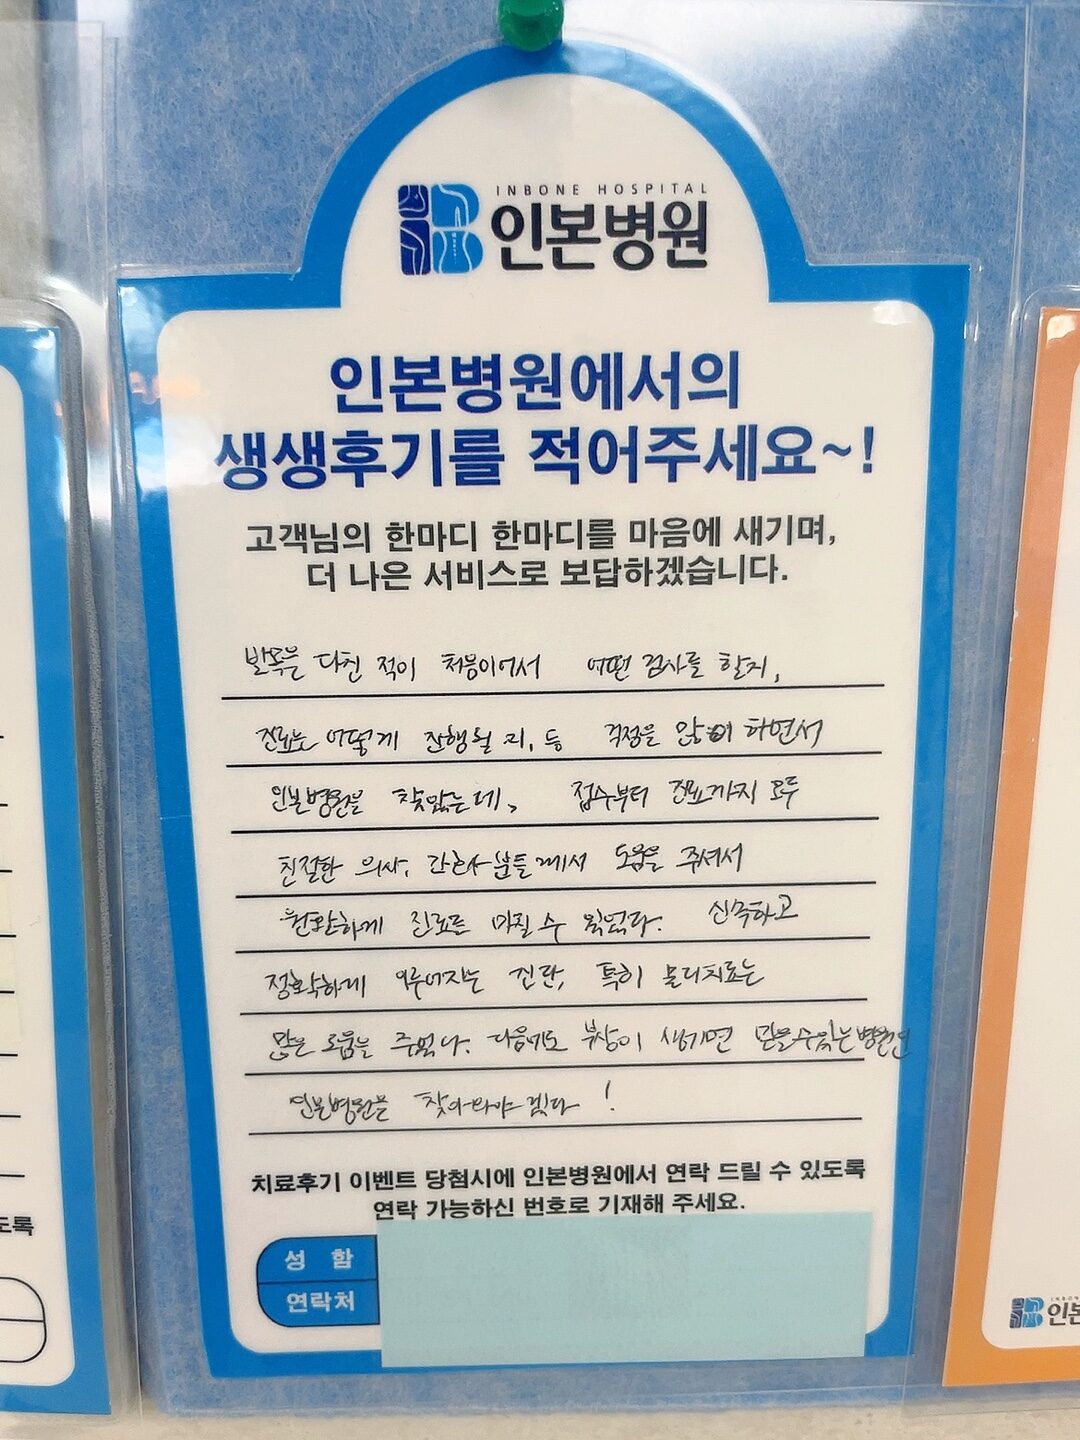 INBONE HOSPITAL
인본병원
인본병원에서의
생생후기를 적어주세요~!
고객님의 한마디 한마디를 마음에 새기며,
더 나은 서비스로 보답하겠습니다.
발목을 다친 적이 처음이어서 어떤 검사를 할지,
진료는 어떻게 진행될 지, 등 걱정을 많이 하면서
인본병원을 찾았는데, 접수부터 진료까지 모두
친절한 의사, 간호사분들께서 도움을 주셔서
원활하게 진료를 마칠 수 있었다. 신속하고
정확하게 이루어지는 진단, 특히 물리치료는
많은 도움을 주었다. 다음에도 부상이 생기면 믿을수있는병원인
인본병원을 찾아와야겠다!
치료후기 이벤트 당첨시에 인본병원에서 연락 드릴 수 있도록
연락 가능하신 번호로 기재해 주세요.
성 함
연락처
도록
인본